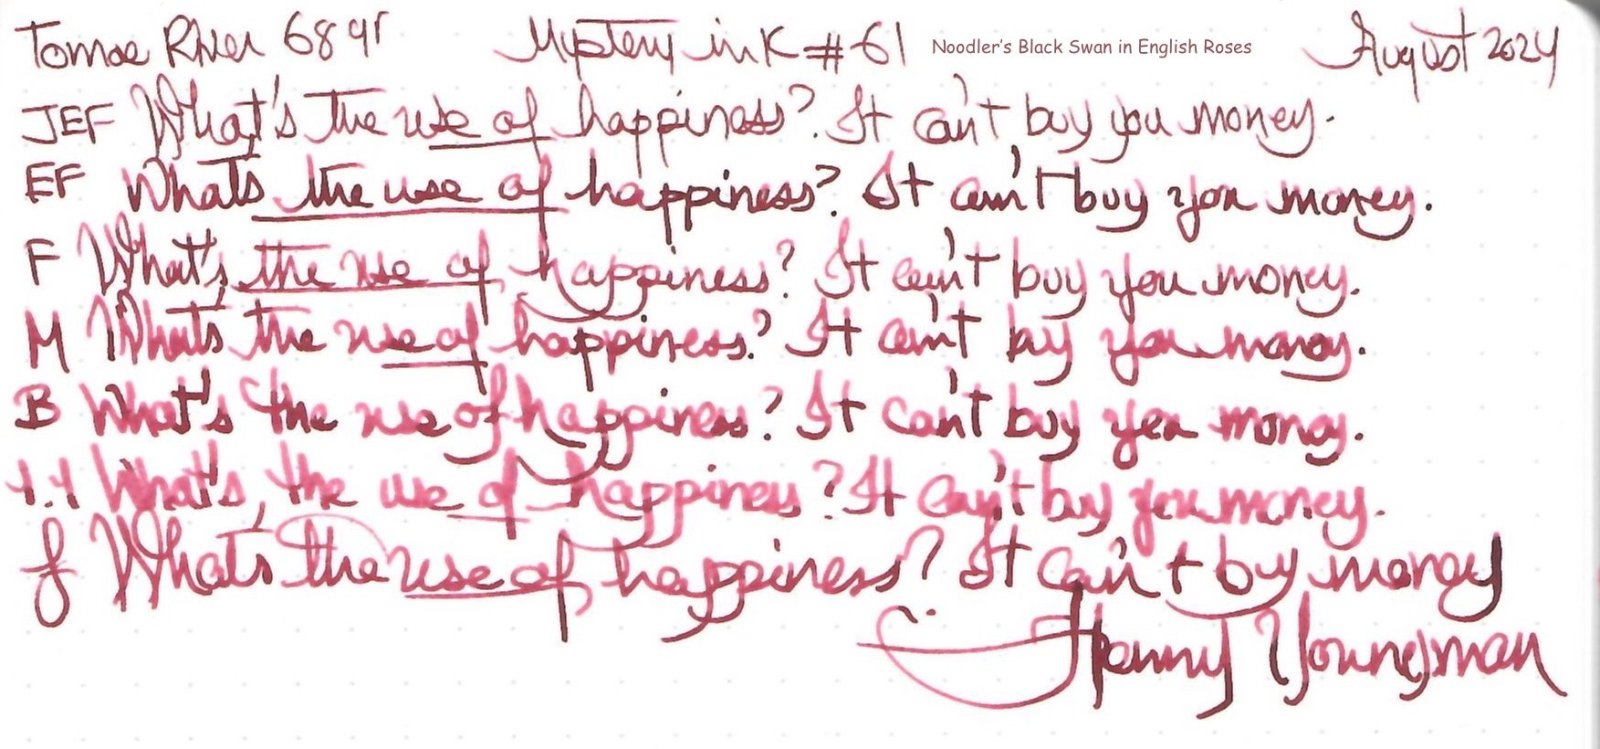 Tomoe River 68gr Mystery ink #61 Noodler's Black Swan in English Roses August 2024
JEF What's the use of happiness? It can't buy you money.
EF What's the use of happiness? It can't buy you money.
F What's the use of happiness? It can't buy you money.
M What's the use of happiness? It can't buy you money.
B What's the use of happiness? It can't buy you money.
1.1 What's the use of happiness? It can't buy you money.
f What's the use of happiness? It can't buy money
Henny Youngman